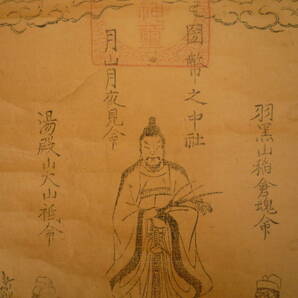 国幣之中社
月山月夜見命
羽黒山稲倉魂命
湯殿山大山祇命